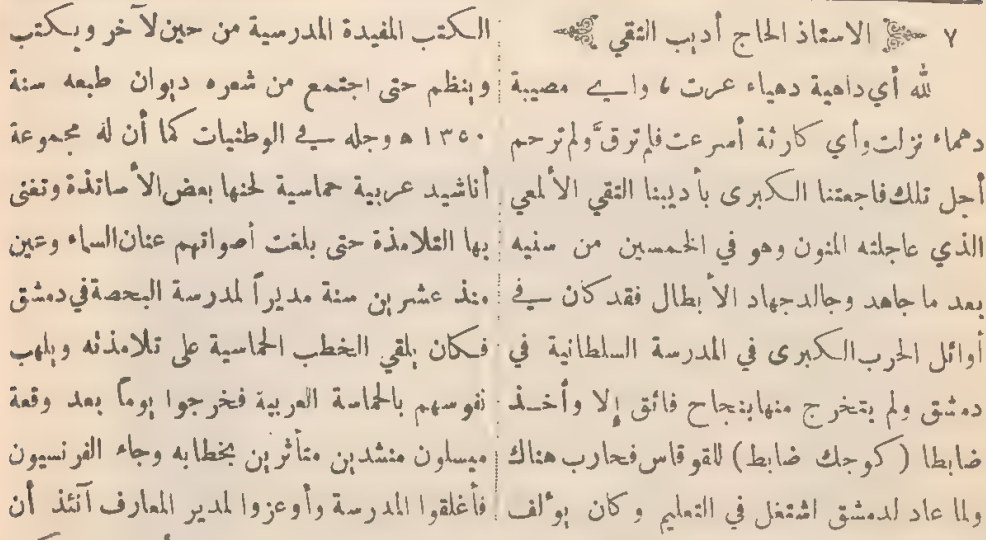 ٧ الاستاذ الحاج أديب التقي
لله أي داهية دهياء عرت ، واي مصيبة
دهماء نزلت وأي كارثة أسرعت فلم ترقَّ ولم ترحم
أجل تلك فاجعتنا الكبرى بأديبنا التقي الألمعي
الذي عاجلته المنون وهو في الخمسين من سنيه
بعد ما جاهد وجالد جهاد الأبطال فقد كان في
أوائل الحرب الكبرى في المدرسة السلطانية في
دمشق ولم يتخرج منها بنجاح فائق إلا وأخذ
ضابطا (كوجك ضابط) للقوقاس فحارب هناك
ولما عاد لدمشق اشتغل في التعليم وكان يؤلف
الكتب المفيدة المدرسية من حين لآخر ويكتب
وينظم حتى اجتمع من شعره ديوان طبعه سنة
١٣٥٠ ه وجله في الوطنيات كما أن له مجموعة
أناشيد عربية حماسية لحنها بعض الأساتذة وتغنى
بها التلامذة حتى بلغت أصواتهم عنان السماء وعين
منذ عشرين سنة مديراً لمدرسة البحصة في دمشق
فكان يلقي الخطب الحماسية على تلامذته ويلهب
نفوسهم بالحماسة العربية فخرجوا يوماً بعد وقعة
ميسلون منشدين متأثرين بخطابه وجاء الفرنسيون
فأغلقوا المدرسة وأوعزوا لمدير المعارف آنئذ أن